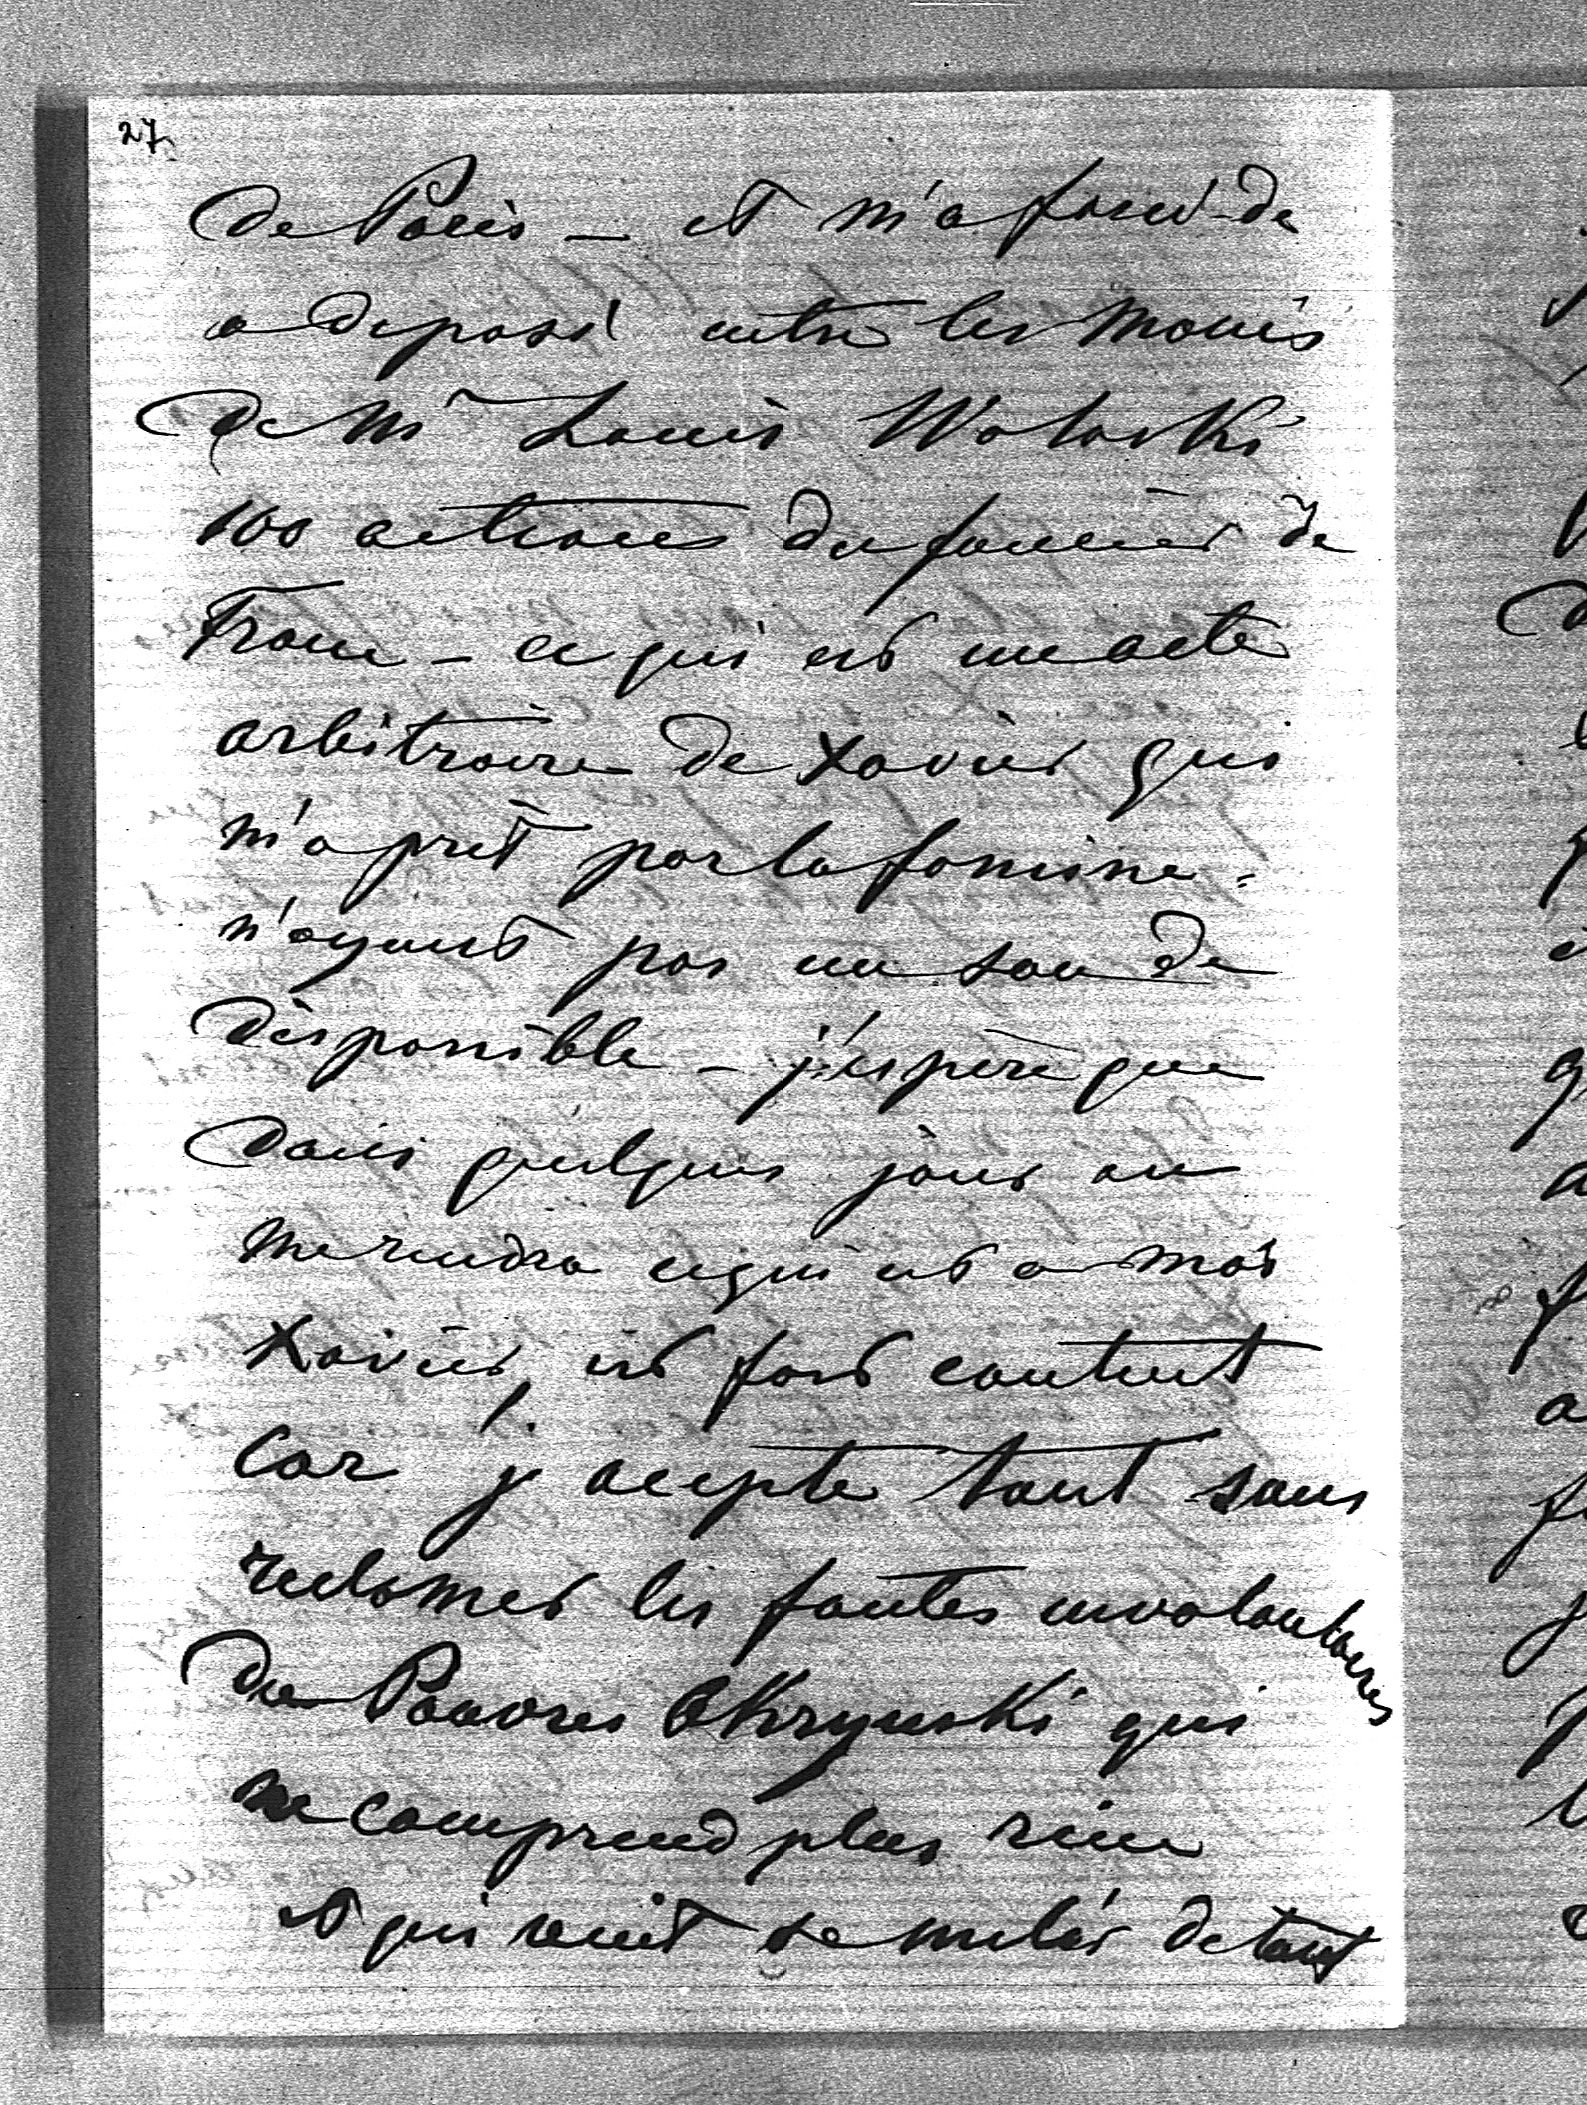 27
de Paris – et m'a forcé de
a deposé entre les mains
de Mr Louis Wolowski
100 actions du foncier de
France – ce qui est un acte
arbitraire de Xavier qui
m'a prit par la famine
n'ayant pas un sou de
disponible – j'espère que
dans quelques jours on
me rendra ce qui est a moi
Xavier est fort content
car j'accepte tout sans
reclamer les fautes involontaires
du Pauvres Okrynski qui
ne comprend plus rien
et qui veut se meler de tout